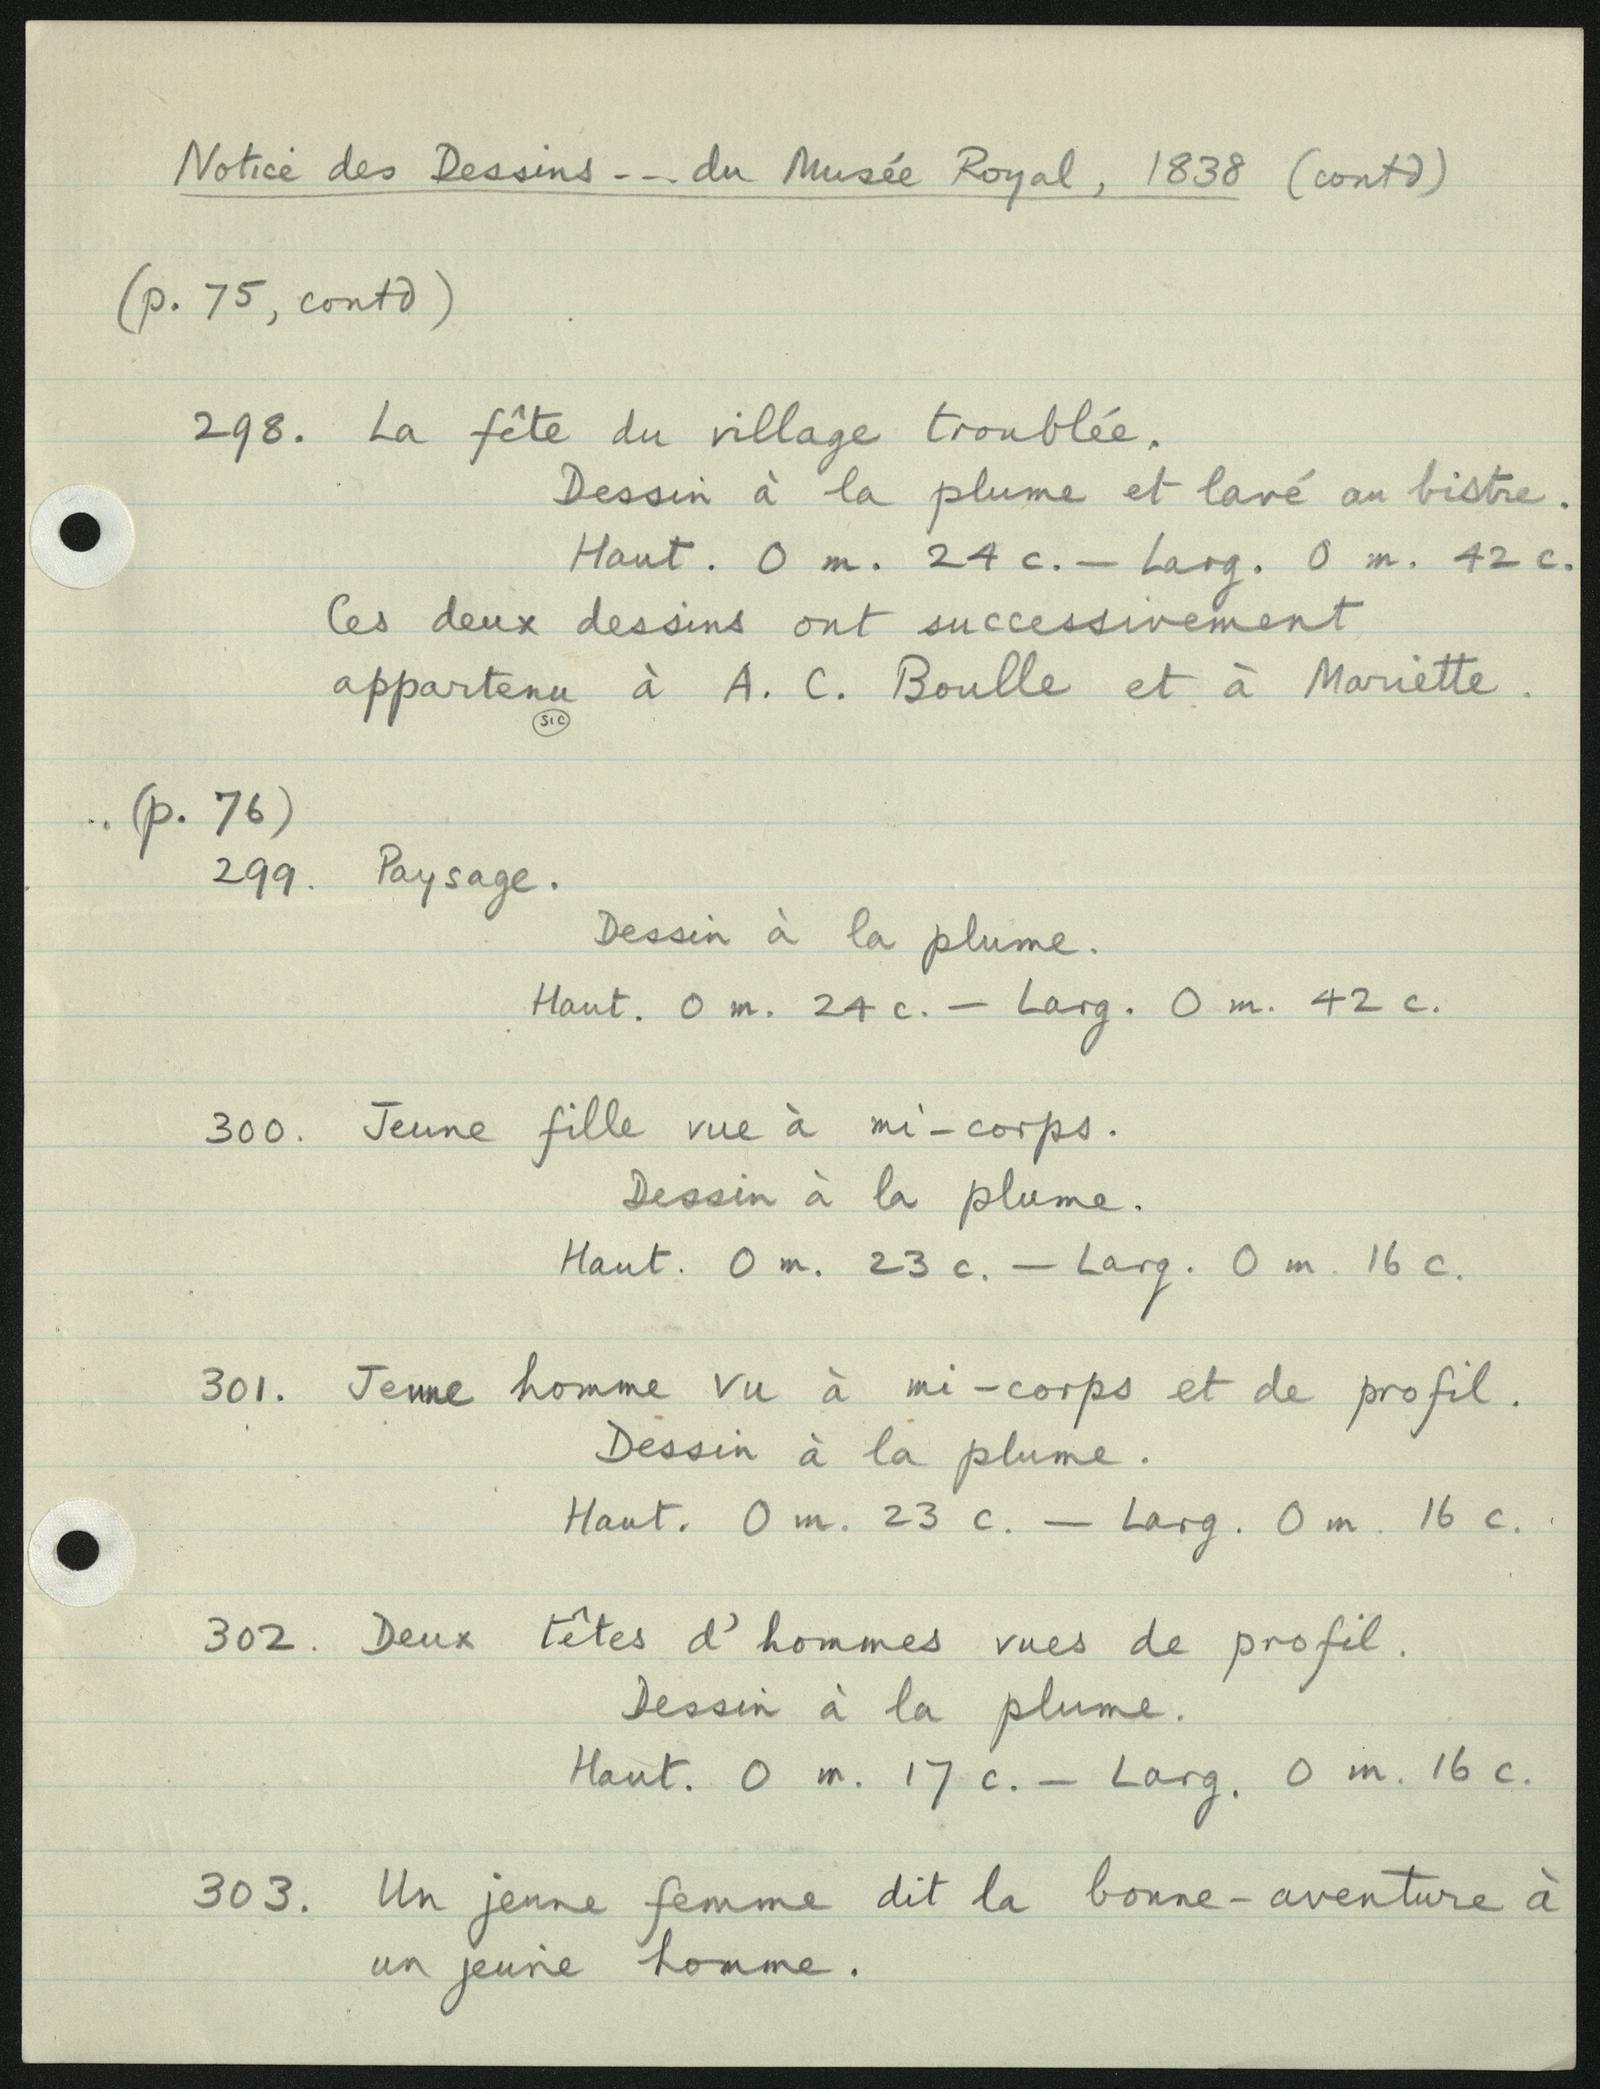 Notice des Dessins --- du Musée Royal, 1838 (contd)
(p. 75, contd)
298. La fête du village troublée.
Dessin à la plume et lavé au bistre.
Haut. 0 m. 24 c. — Larg. 0 m. 42 c.
Ces deux dessins ont successivement
appartenu à A. C. Boulle et à Mariette.
sic
(p. 76)
299. Paysage.
Dessin à la plume.
Haut. 0 m. 24 c. — Larg. 0 m. 42 c.
300. Jeune fille vue à mi-corps.
Dessin à la plume.
Haut. 0 m. 23 c. — Larg. 0 m. 16 c.
301. Jeune homme vu à mi-corps et de profil.
Dessin à la plume.
Haut. 0 m. 23 c. — Larg. 0 m. 16 c.
302. Deux têtes d'hommes vues de profil.
Dessin à la plume.
Haut. 0 m. 17 c. — Larg. 0 m. 16 c.
303. Un jeune femme dit la bonne-aventure à
un jeune homme.